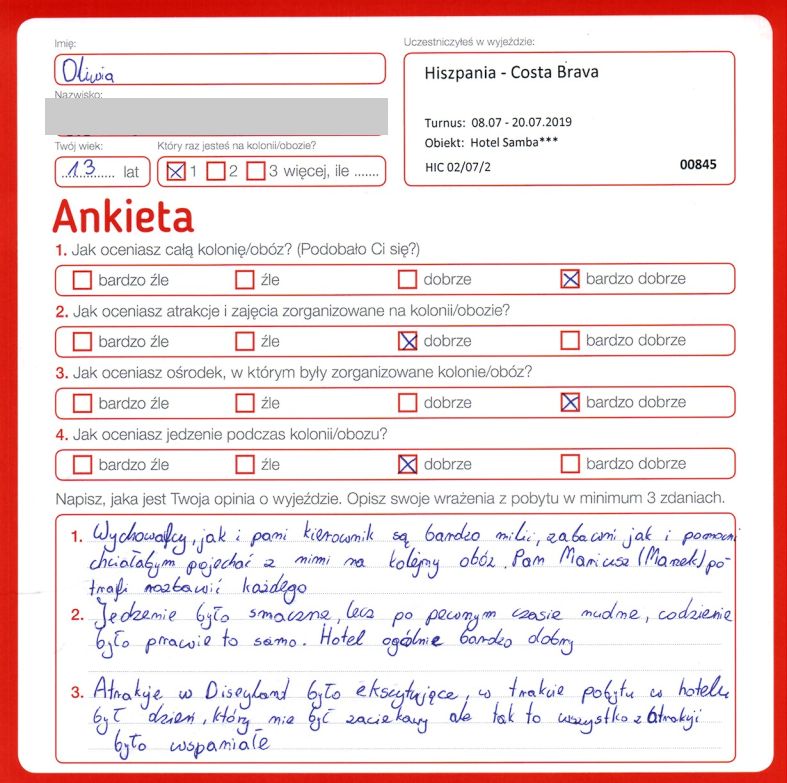 Imię:
Oliwia
Nazwisko:
Twój wiek:
13 lat
Który raz jesteś na kolonii/obozie?
1 2 3 więcej, ile .......
Uczestniczyłeś w wyjeździe:
Hiszpania - Costa Brava
Turnus: 08.07 - 20.07.2019
Obiekt: Hotel Samba***
HIC 02/07/2 00845
Ankieta
1. Jak oceniasz całą kolonię/obóz? (Podobało Ci się?)
bardzo źle źle dobrze bardzo dobrze
2. Jak oceniasz atrakcje i zajęcia zorganizowane na kolonii/obozie?
bardzo źle źle dobrze bardzo dobrze
3. Jak oceniasz ośrodek, w którym były zorganizowane kolonie/obóz?
bardzo źle źle dobrze bardzo dobrze
4. Jak oceniasz jedzenie podczas kolonii/obozu?
bardzo źle źle dobrze bardzo dobrze
Napisz, jaka jest Twoja opinia o wyjeździe. Opisz swoje wrażenia z pobytu w minimum 3 zdaniach.
1. Wychowawcy, jak i pani kierownik są bardzo mili, zabawni jak i pomocni
chciałabym pojechać z nimi na kolejny obóz. Pan Mariusz (Manek) po-
trafi rozbawić każdego
2. Jedzenie było smaczne, lecz po pewnym czasie nudne, codzienie
było prawie to samo. Hotel ogólnie bardzo dobry
3. Atrakyje w Diseyland było ekscytujące, w trakcie pobytu w hotelu
był dzień, który nie był zaciekawy ale tak to wszystko z atrakyji
było wspaniałe